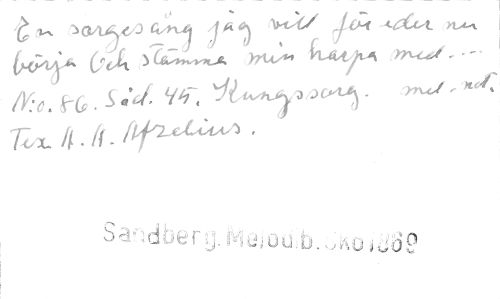 En sorgesång jag vill för eder nu
börja Och stämma min harpa med....
N:o. 86. Sid. 45. Kungssorg. mel. not.
Tex. A. A. Afzelius.
Sandberg. Melodib. Sko 1869